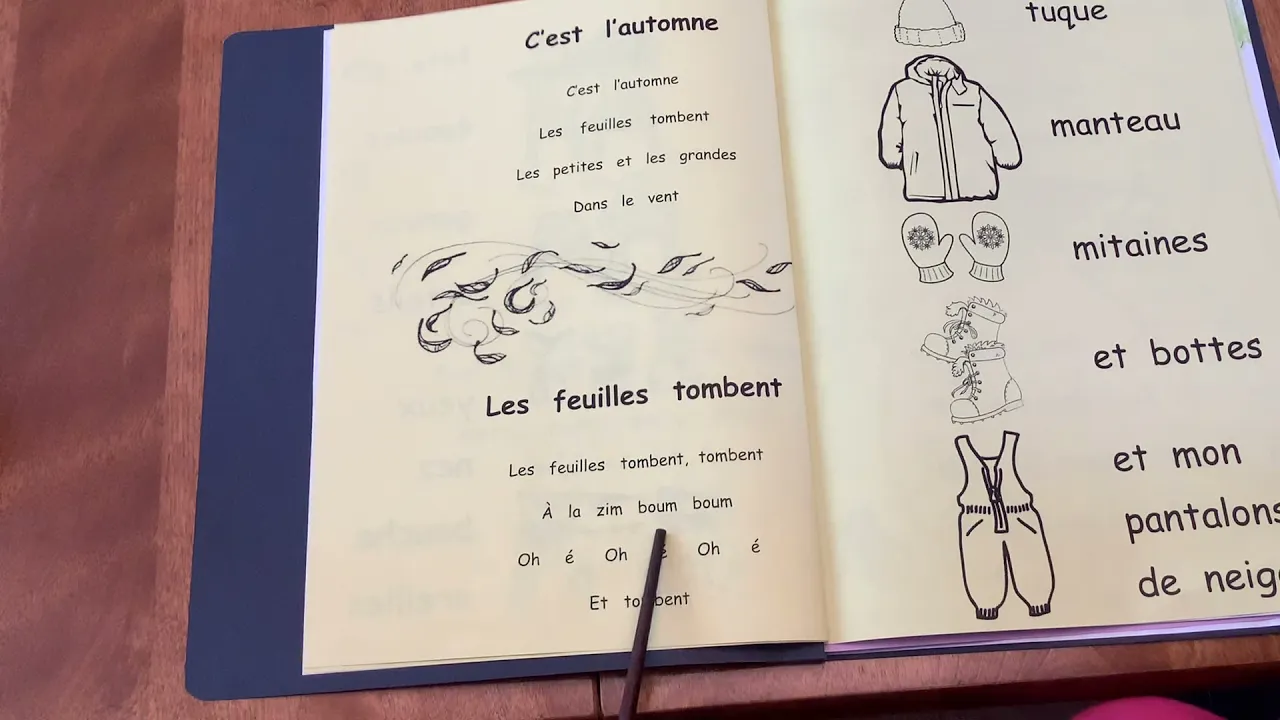 C'est l'automne
C'est l'automne
Les feuilles tombent
Les petites et les grandes
Dans le vent
Les feuilles tombent
Les feuilles tombent, tombent
À la zim boum boum
Oh é Oh é Oh é
Et tombent
tuque
manteau
mitaines
et bottes
et mon
pantalons
de neig